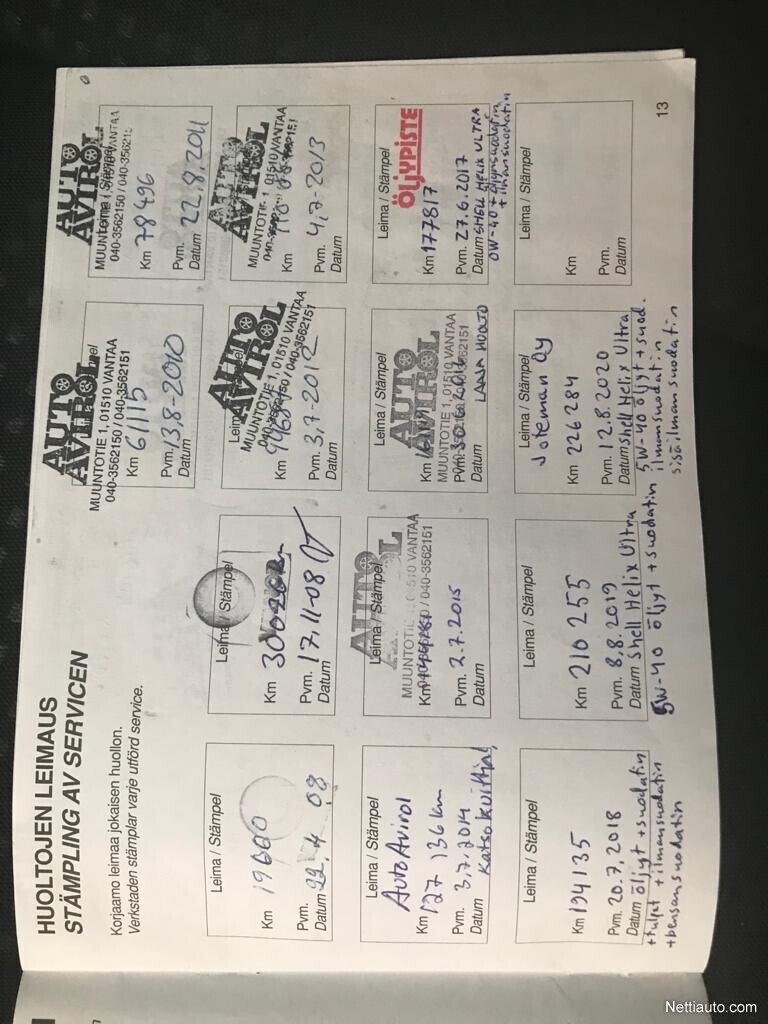 HUOLTOJEN LEIMAUS
STÄMPLING AV SERVICEN
Korjaamo leimaa jokaisen huollon.
Verkstaden stämplar varje utförd service.
AUTO
AVIROL
MUUNTOTIE 1, 01510 VANTAA
040-3562150 / 040-3562151
Km 61115
Pvm. 13,8-2010
Datum
AUTO
AVIROL
Leima / Stämpel
MUUNTOTIE 1, 01510 VANTAA
040-3562150 / 040-3562151
Km 78496
Pvm. 22.8.2011
Datum
Leima / Stämpel
Km 19660
Pvm. 22.4 08
Datum
Leima / Stämpel
Km 30020km
Pvm. 17.11-08
Datum
AUTO
AVIROL
MUUNTOTIE 1, 01510 VANTAA
040-3562150 / 040-3562151
Km
Pvm. 3,7-2012
Datum
AUTO
AVIROL
MUUNTOTIE 1, 01510 VANTAA
Km
Pvm. 4.7-2013
Datum
Leima / Stämpel
Auto Avirol
Km 127 136 km
Pvm. 3.7.2014
Datum Katso kuittia!
AUTO
Leima / Stämpel
MUUNTOTIE 1, 01510 VANTAA
040-3562150 / 040-3562151
Km
Pvm. 2.7.2015
Datum
Leima / Stämpel
AUTO
AVIROL
MUUNTOTIE 1, 01510 VANTAA
040-3562150 / 040-3562151
Km
Pvm.
Datum
Leima / Stämpel
ÖLJYPISTE
Km 177817
Pvm. 27.6.2017
Datum SHELL HELIX ULTRA
0W-40 + öljynsuodatin
+ ilmansuodatin
Leima / Stämpel
Km 194135
Pvm. 20.7.2018
Datum öljyt + suodatin
+ tulpat + ilmansuodatin
+ bensansuodatin
Leima / Stämpel
Km 210 255
Pvm. 8.8.2019
Datum Shell Helix Ultra
5W-40 öljyt + suodatin
Leima / Stämpel
Joteman Oy
Km 226284
Pvm. 12.8.2020
Datum Shell Helix Ultra
5W-40 öljyt + suod.
ilmansuodatin
sisäilmansuodatin
Leima / Stämpel
Km
Pvm.
Datum
13
Nettiauto.com